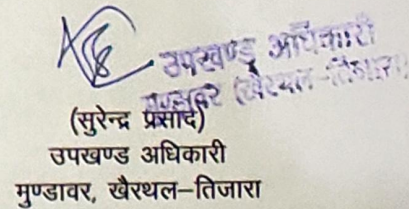 उपखण्ड अधिकारी
मुण्डावर (खैरथल-तिजारा)
(सुरेन्द्र प्रसाद)
उपखण्ड अधिकारी
मुण्डावर, खैरथल-तिजारा